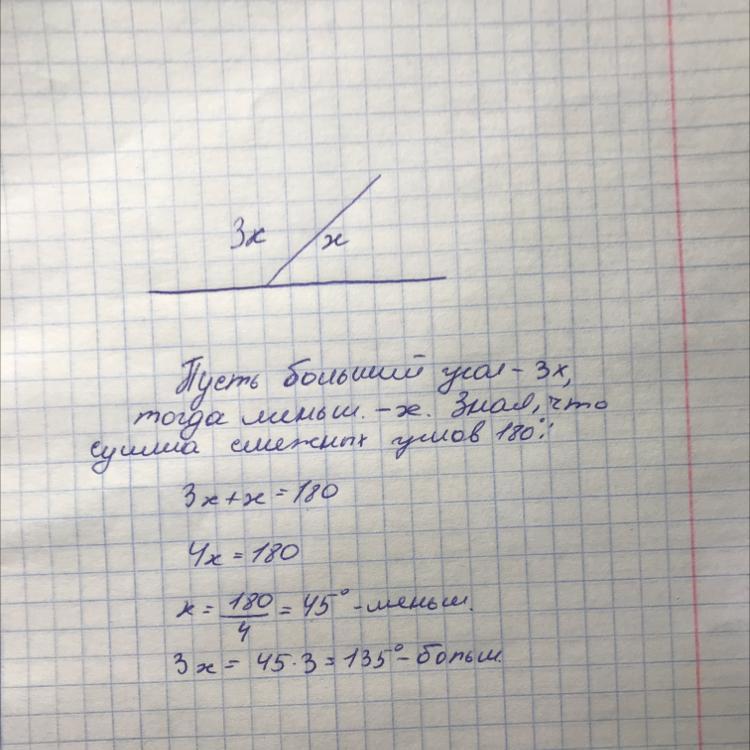 3x x
Пусть больший угол - 3x,
тогда меньш. - x. Зная, что
сумма смежных углов 180°:
3x+x=180
4x=180
x = 180/4 = 45° - меньш.
3x = 45·3 = 135° - больш.